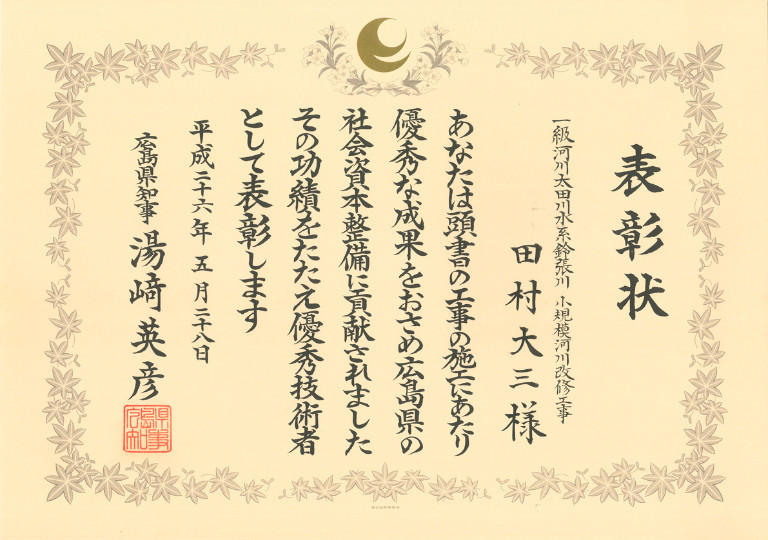 表彰状
一級河川太田川水系鈴張川 小規模河川改修工事
田村大三様
あなたは頭書の工事の施工にあたり
優秀な成果をおさめ広島県の
社会資本整備に貢献されました
その功績をたたえ優秀技術者
として表彰します
平成二十六年五月二十八日
広島県知事 湯﨑英彦